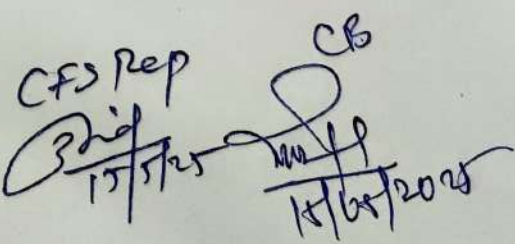 CB
CFS Rep
15/5/25
15/05/2025